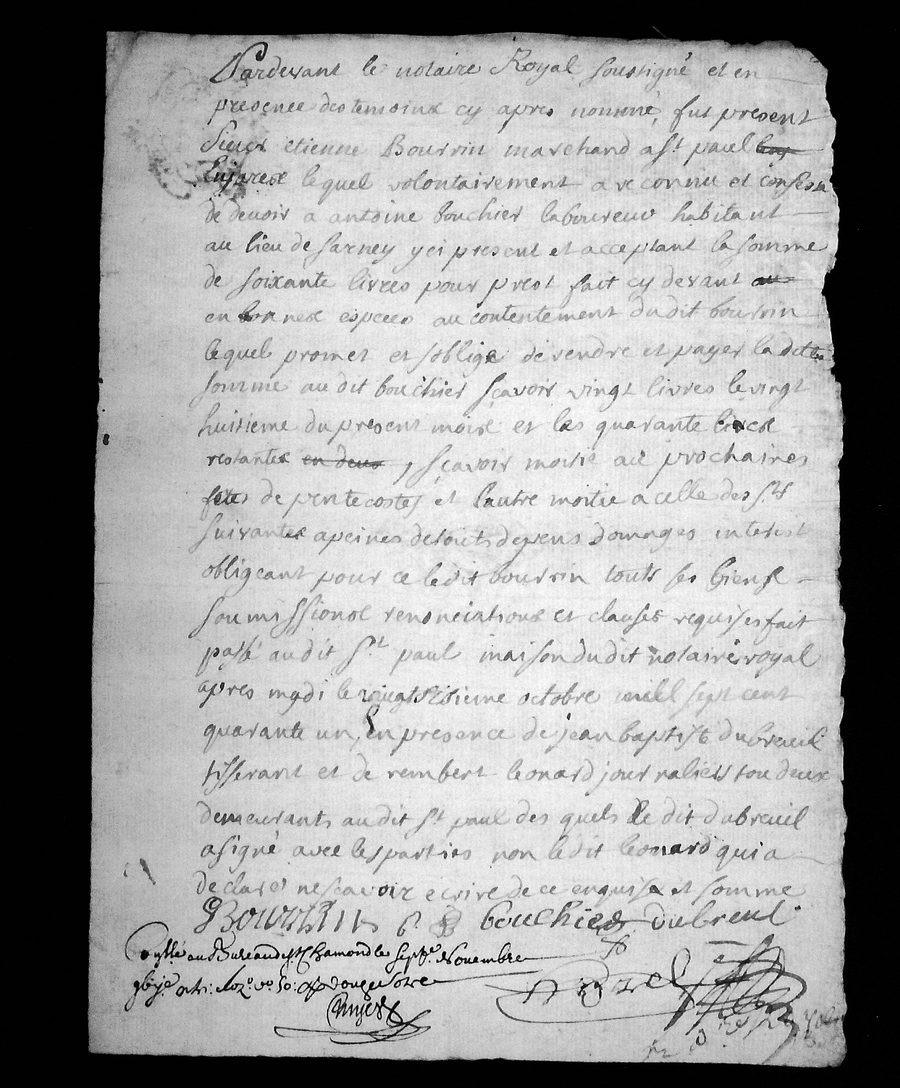 Pardevant le notaire Royal soussigné et en
presence des temoins cy apres nommé, fut present
Sieur etienne Bourrin marchand a St paul
lequel volontairement a reconnu et confessé
de devoir a antoine bouchier laboureur habitant
au lieu de Sarney yci present et acceptant la somme
de soixante livres pour prest fait cy devant au
en bonnes especes au contentement dudit bourrin
lequel promet et soblige de rendre et payer la ditte
somme audit bouchier sçavoir vingt livres le vingt
huitieme du present mois et les quarante livres
restantes en deux, sçavoir moitié aux prochaines
fetes de pentecostes et lautre moitie a celle des Sts
suivantes a peines de touts depens domages interest
obligeant pour ce ledit bourrin touts ses biens
soumissions renonciations et clauses requises fait
passé audit St paul maison dudit notaire royal
apres midi le octobre mil sept cent
quarante un, en presence de jean baptiste dubreuil
tisserant et de rembert leonard journaliers tou deux
demeurants audit St paul des quels le dit dubreuil
a signé avec les parties non ledit leonard qui a
declaré ne scavoir ecrire de ce enquis et somme
Bourrin bouchier dubreul
au Bureau de St Chamond le sept novembre